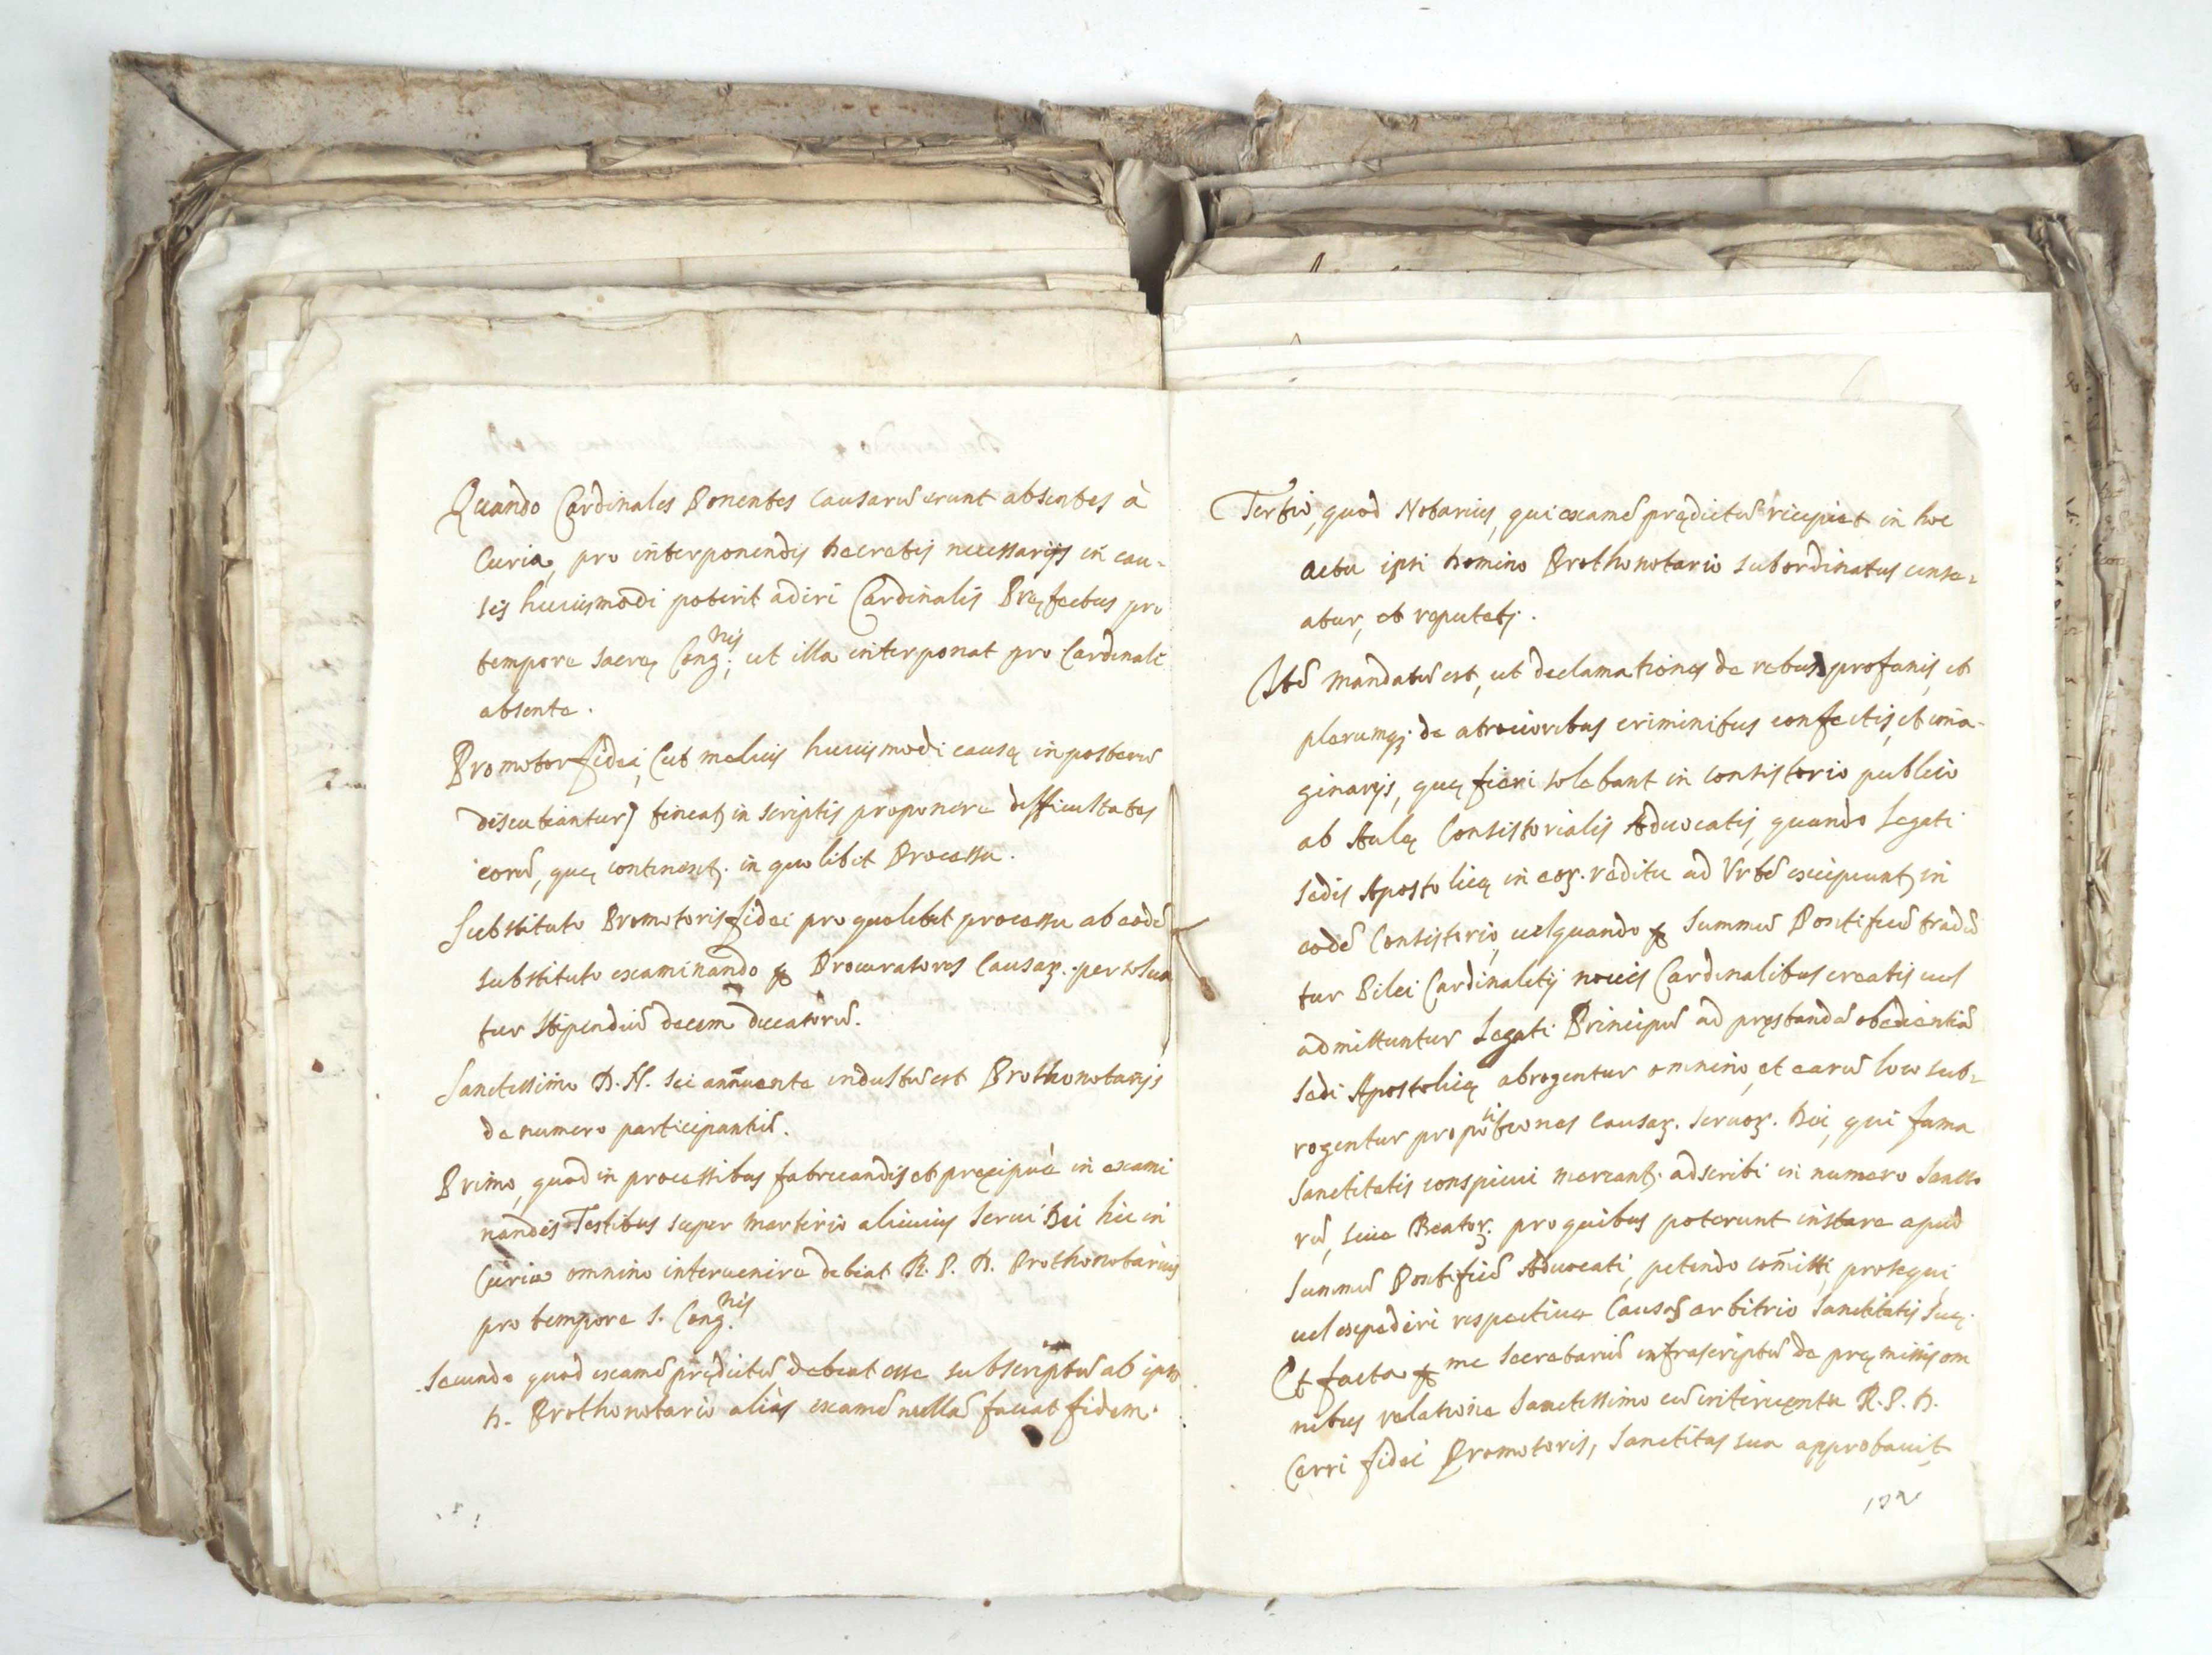 Quando Cardinales Ponentes Causarũ erunt absentes à
Curia, pro interponendis Decretis necessarijs in cau-
sis huiusmodi poterit adiri Cardinalis Pręfectus pro
tempore sacrę Cong.nis, ut illa interponat pro Cardinali
absente.
Promotor fidei, (ut melius huiusmodi causę in posterũ
discutiantur) in scriptis proponere difficultates
eorũ, quę continentʒ. in quolibet Processu.
Substituto Promotoris fidei pro quolibet processu ab eodẽ
substituto examinando ꝑ Procuratores Causaꝝ. persolua
tur stipendiũ decem ducatorũ.
Sanctissimo D. N. sic annuente indultũ est Prothonotarijs
de numero participantiũ.
Primo, quod in processibus fabricandis et pręcipuè in exami
nandis Testibus super martirio alicuius Serui Dei hic in
Curia omnino interuenire debeat R. P. D. Prothonotarius
pro tempore S. Cong.nis
Secundo quod examẽ prędictũ debeat esse subscriptũ ab ipso
D. Prothonotario aliàs examẽ nullã faciat fidem.
Tertio, quod Notarius, qui examẽ prędictũ recipiet in hoc
actu ipsi Domino Prothonotario subordinatus cense-
atur, et reputetʒ.
Itẽ mandatũ est, ut declamationes de rebus profanis, et
plerumqʒ. de atrocioribus criminibus confectis, et ima-
ginarijs, quę fieri solebant in consistorio publico
ab Aulę Consistorialis Aduocatis, quando Legati
sedis Apostolicę in eoꝝ. reditu ad Vrbẽ excipiuntʒ in
eodẽ Consistorio, uel quando ꝑ Summũ Pontificẽ tradũ
tur Pilei Cardinalitij nouis Cardinalibus creatis uel
admittuntur Legati Principũ ad pręstandã obedientiã
Sedi Apostolicę abrogentur omnino, et earũ loco sub-
rogentur propositiones causaꝝ. seruoꝝ. Dei, qui fama
sanctitatis conspicui mereantʒ. adscribi in numero Sancto
rũ, siue Beatoꝝ. pro quibus poterunt instare apud
Summũ Pontificẽ Aduocati, petendo com̃itti, prosequi,
uel expediri respectiue Causas arbitrio Sanctitatis Suę.
Et facta ꝑ me Secretariũ infrascriptũ de pręmissis om
nibus relatione Sanctissimo cũ interuentu R. P. D.
Cerri fidei Promotoris, Sanctitas sua approbauit,